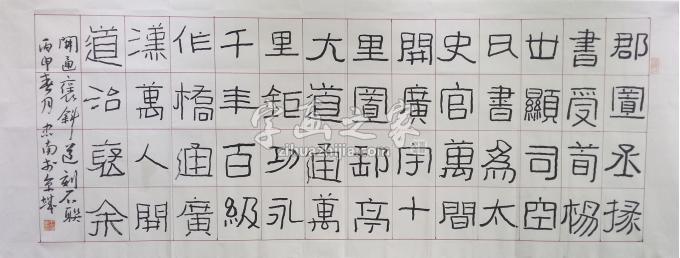 郡置丞掾
書受荀楊
世顯司空
曰書為太
史官萬間
開廣宇十
里置郵亭
大道通萬
里鉅功永
千年百級
作橋通廣
漢萬人開
道治褒余
開通褒斜道刻石聯
丙申春月忠南於京城
字画之家
zihuazhijia.com